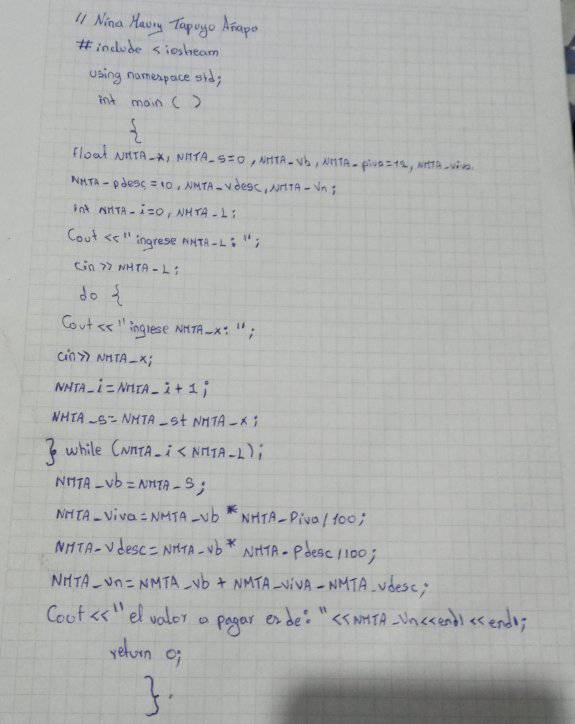 // Nina Maury Tapuyo Añapo
# include < iostream
using namespace std;
int main ( )
{
Float NMTA_x, NMTA_s=0, NMTA_vb, NMTA_piva=12, NMTA_viva.
NMTA-pdesc=10, NMTA-vdesc, NMTA-Vn;
int NMTA-i=0, NMTA-L;
Cout <<"ingrese NMTA-L: ";
cin >> NMTA-L;
do {
Cout <<"ingrese NMTA_x: ";
cin>> NMTA_x;
NMTA_i=NMTA_i+1;
NMTA_s=NMTA_s+NMTA_x;
} while (NMTA_i < NMTA-L);
NMTA_vb=NMTA_S;
NMTA_viva=NMTA_vb * NMTA_Piva/100;
NMTA-Vdesc=NMTA-vb* NMTA-Pdesc/100;
NMTA_vn=NMTA_vb + NMTA_viva-NMTA_vdesc;
Cout <<"el valor a pagar es de: "<<NMTA_Vn<<endl<<endl;
return 0;
}.